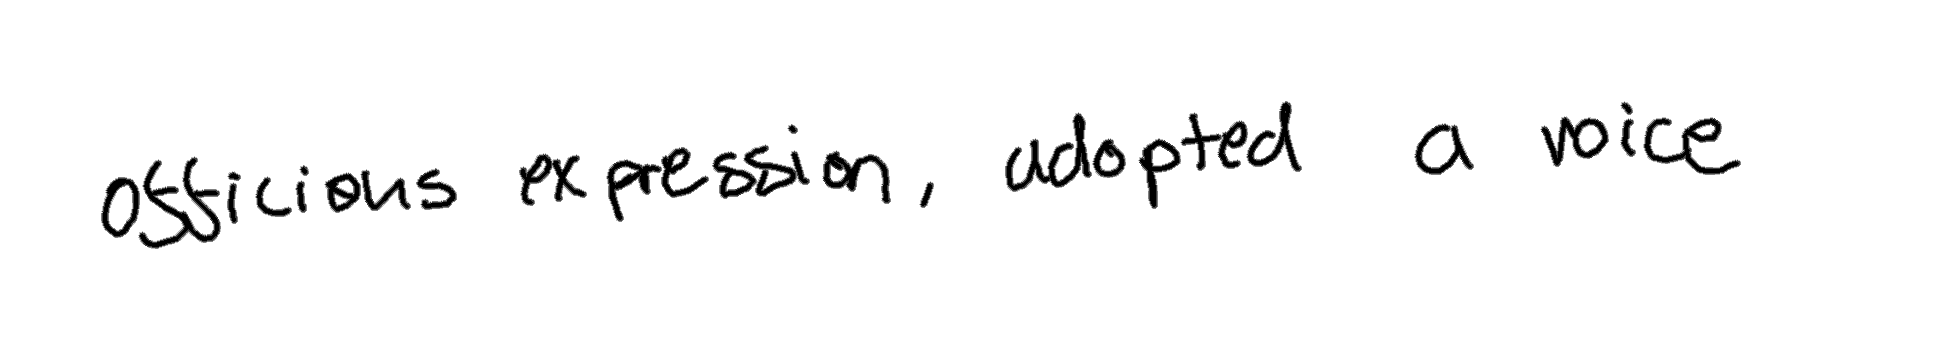 officious expression, adopted a voice